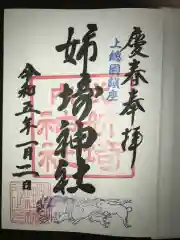 慶春奉拝
上総国鎮座
姉埼神社
令和五年一月二日